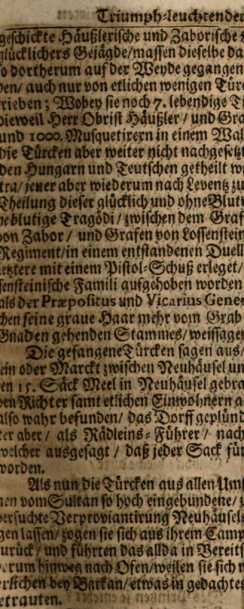 Triumph-leuchtender
geschickte Häußlerische und Zaborische
glücklichers Gejägde/massen dieselbe da
so dortherum auf der Weyde gegangen
den/ auch nur von etlichen wenigen Türc
trieben; Wobey sie noch 7. lebendige T
dieweil Herr Obrist Häußler/ und Gra
und 1000. Musquetirern in einem Wal
die Türcken aber weiter nicht nachgesetzt
den Hungarn und Teutschen getheilt w
tra/ jener aber wiederum nach Levenz zu
Theilung dieser glücklich und ohne Blut
ne blutige Tragödi/ zwischen dem Graf
von Zabor/ und Grafen von Lossenstein
Regiment/in einem entstandenen Duell
letztere mit einem Pistol-Schuß erleget/
ensteinische Famili aufgehoben worden
als der Præpositus und Vicarius Gene
chen seine graue Haar mehr vom Grab
Gnaden gehenden Stammes/ weissagen
Die gefangene Türcken sagen aus/
ein oder Marckt zwischen Neuhäusel un
en 15. Säck Meel in Neuhäusel gebra
en Richter samt etlichen Einwohnern a
also wahr befunden/ das Dorff geplünd
ter aber/ als Rädleins-Führer/ nach
welcher ausgesagt/ daß jeder Sack für
worden.
Als nun die Türcken aus allen Umst
nen vom Sultan so hoch eingebundene/
versuchte Verproviantirung Neuhäusels
gen lassen/ zogen sie sich aus ihrem Camp
zurück/ und führten das allda in Bereits
rum hinweg nach Ofen/weilen sie sich
erlichen bey Barkan/ etwas in gedachte
etrauten.